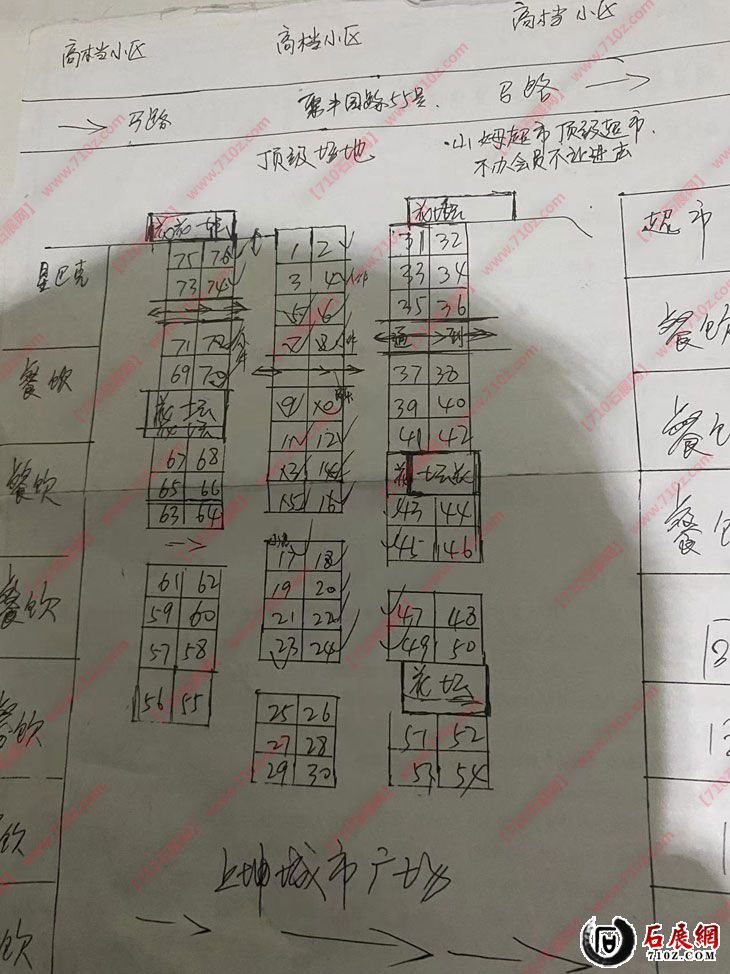 高档小区 高档小区 高档小区
马路 聚丰园路55号. 马路
顶级场地
山姆超市顶级超市.
不办会员不让进去
花坛
星巴克
75 76
73 74
71 72
69 70
花坛
67 68
65 66
63 64
61 62
59 60
57 58
56 55
1 2
3 4
5 6
7 8
9 10
11 12
13 14
15 16
17 18
19 20
21 22
23 24
25 26
27 28
29 30
花坛
31 32
33 34
35 36
通 到
37 38
39 40
41 42
花坛
43 44
45 46
47 48
49 50
花坛
51 52
53 54
餐饮
餐饮
餐饮
餐饮
饮
饮
超市
餐饮
餐
餐
城市广场
【710石展网】www.710z.com
石展網
710Z.COM